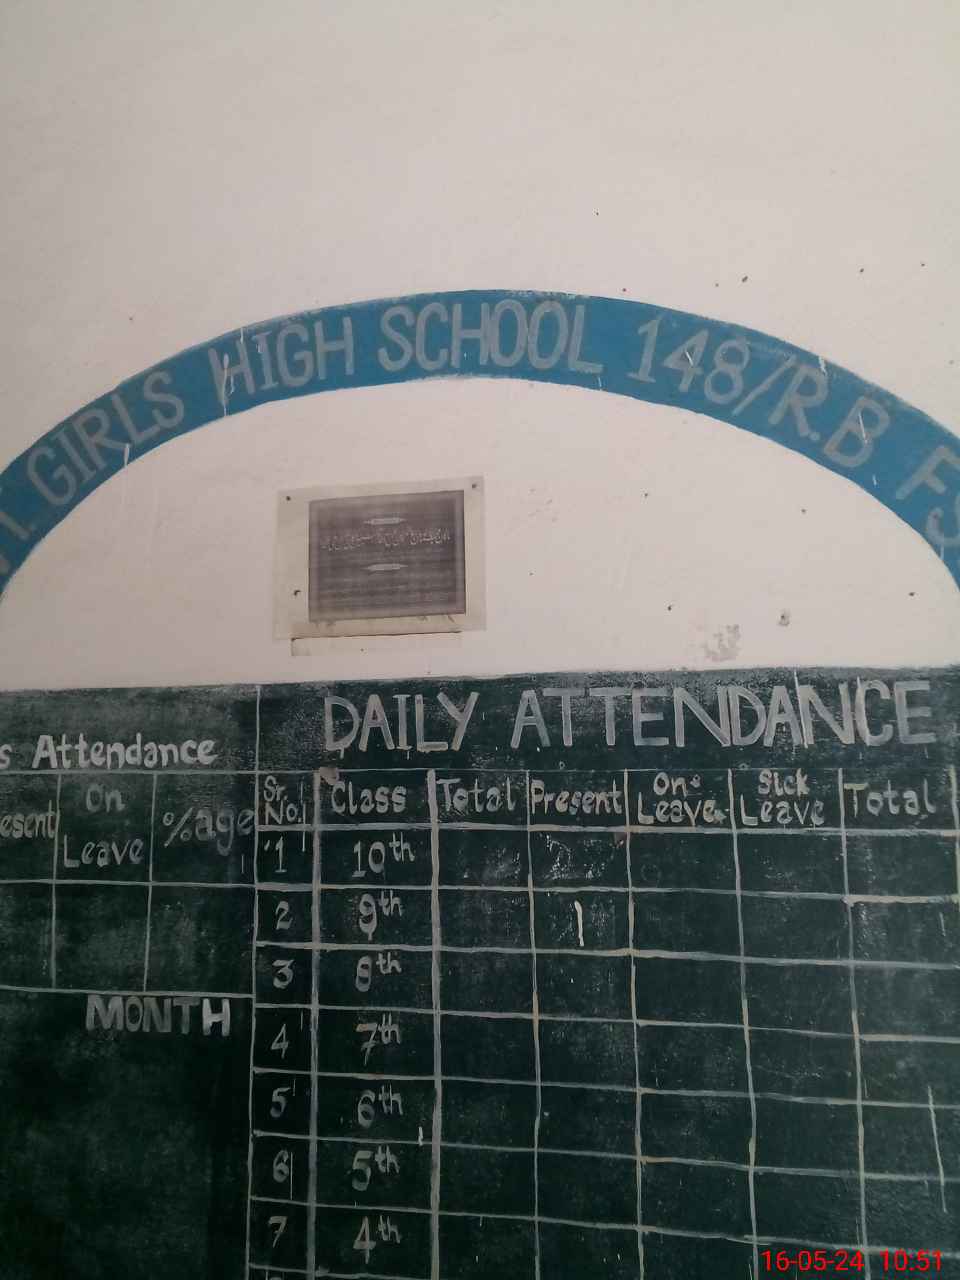 T. GIRLS HIGH SCHOOL 148/R.B FS
DAILY ATTENDANCE
s Attendance
esent On Leave %age
MONTH
Sr. No. Class Total Present On Leave Sick Leave Total
1 10th
2 9th
3 8th
4 7th
5 6th
6 5th
7 4th
16-05-24 10:51